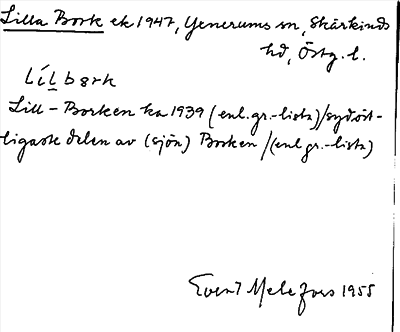 Lilla Bork ek 1947, Yxnerums sn, Skärkinds
hd, Östg. l.
Lílbårk
Lill-Borken ka 1939 (enl. gr.-lista)/sydöst-
ligaste delen av (sjön) Borken/(enl gr.-lista)
Evert Melefors 1955